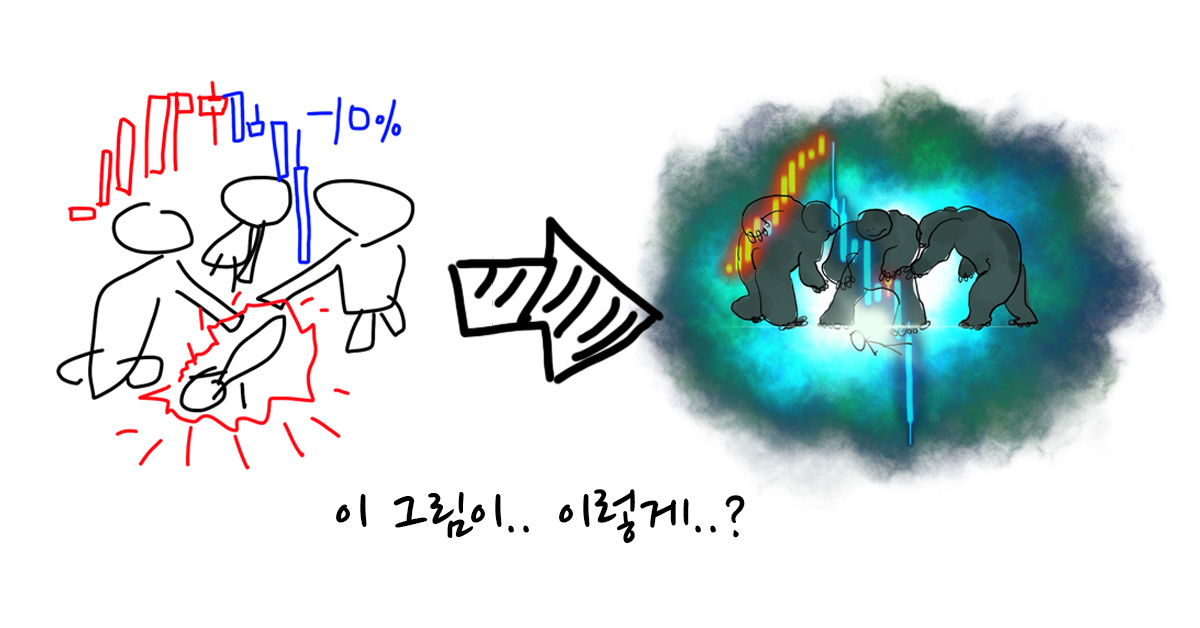 -10%
이 그림이.. 이렇게..?